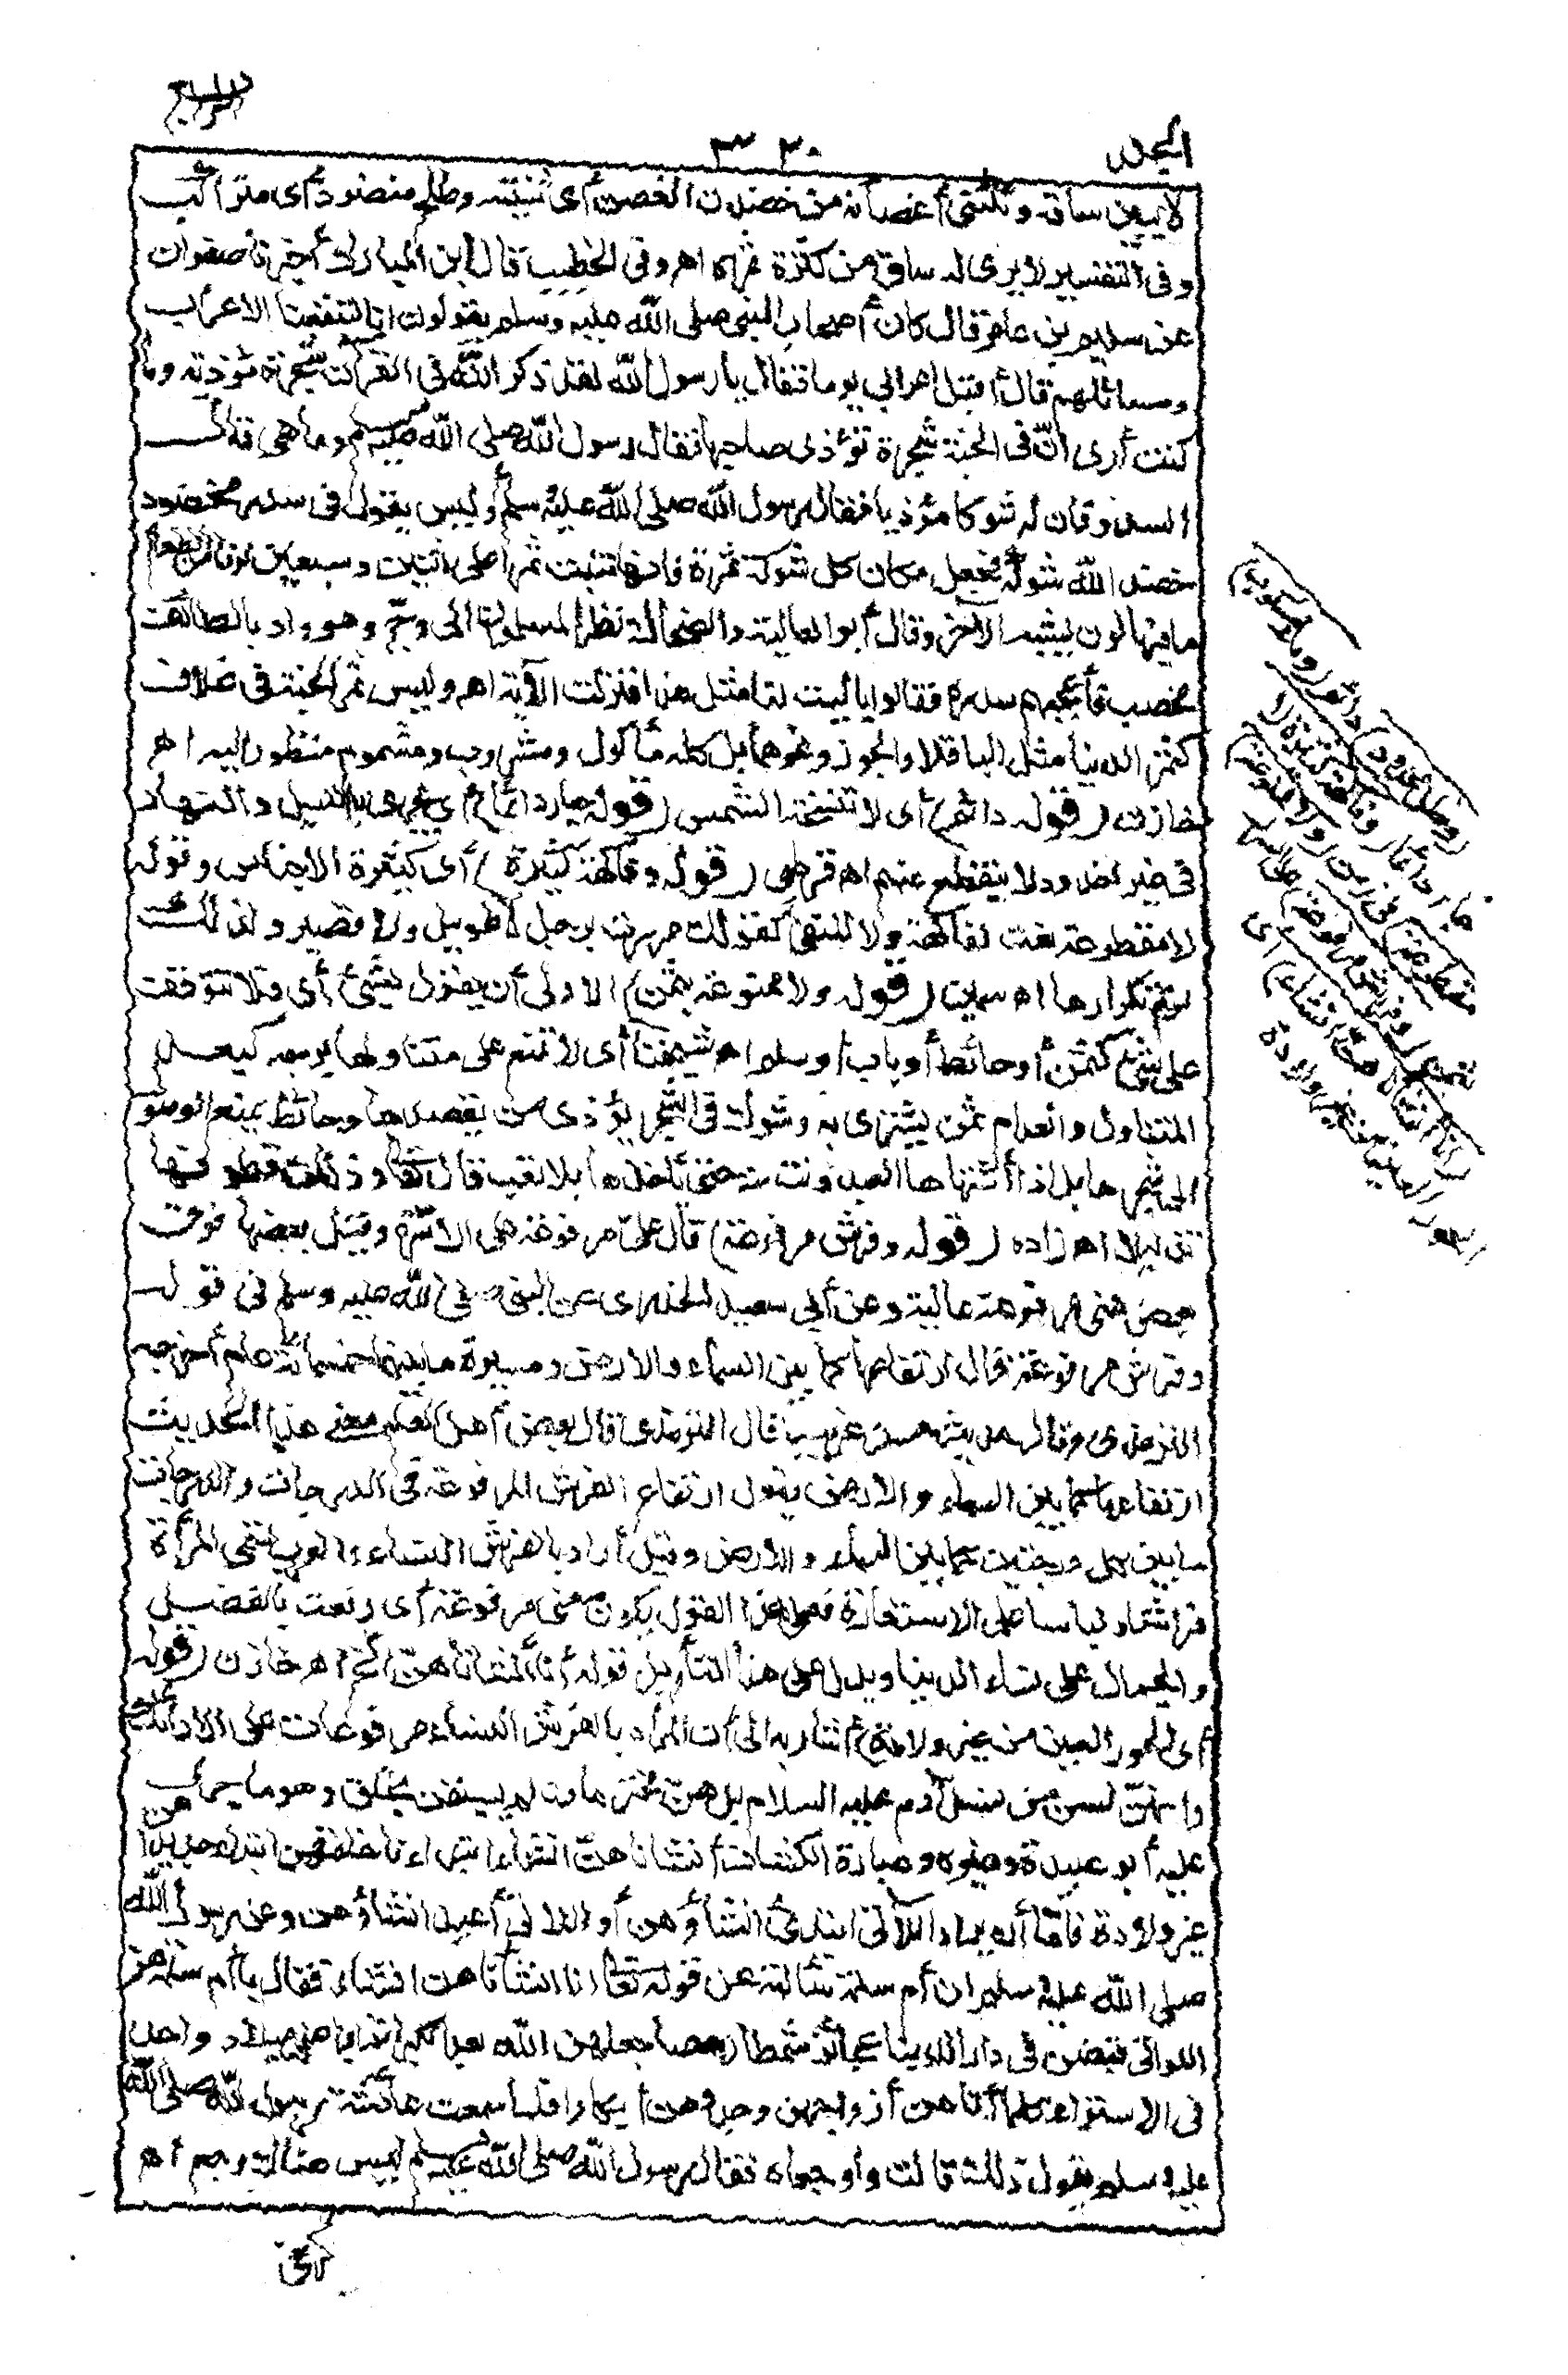 الجزء
٣٣٠
الرابع
لا يبين ساقه وتثنى أغصانه من خضدت الغصن أي ثنيته وطلح منضود أي متراكب
وفي التفسير لا يرى له ساق من كثرة ثمره اهـ وفي الخطيب قال ابن المبارك أخبرنا صفوان
عن سليم بن عامر قال كان أصحاب النبي صلى الله عليه وسلم يقولون انا لتنفعنا الاعراب
ومسائلهم قال أقبل اعرابي يوما فقال يا رسول الله لقد ذكر الله في القرآن شجرة مؤذية وما
كنت أرى أن في الجنة شجرة تؤذي صاحبها فقال رسول الله صلى الله عليه وسلم وما هي قال
السدر فان له شوكا مؤذيا فقال رسول الله صلى الله عليه وسلم أوليس يقول في سدر مخضود
خضد الله شوكه فجعل مكان كل شوكة ثمرة فانها تنبت ثمرا على اثنين وسبعين لونا من الطعام
ما فيها لون يشبه الآخر وقال أبو العالية والضحاك نظر المسلمون الى وج وهو واد بالطائف
مخصب فأعجبهم سدره فقالوا يا ليت لنا مثل هذا فنزلت الآية اهـ وليس ثمر الجنة في غلاف
كثمر الدنيا مثل الباقلا والجوز ونحوهما بل كله مأكول ومشروب ومشموم منظور اليه اهـ
خازن (قوله دائم) أي لا تنسخه الشمس (قوله جار دائما) أي يجري بالليل والنهار
في غير أخدود لا ينقطع عنهم اهـ قرطبي (قوله وفاكهة كثيرة) أي كثيرة الاجناس وقوله
لا مقطوعة نعت لفاكهة ولا للنفي كقولك مررت برجل لا طويل ولا قصير ولذلك
لزم تكرارها اهـ سمين (قوله ولا ممنوعة بثمن) الاولى أن يقول بشئ أي فلا تتوقف
على شئ كثمن أو حائط أو باب أو سلم اهـ شيخنا أي لا تمنع على متناولها بوجه كبعد
المتناول وانعدام ثمن يشترى به وشوك في الشجر يؤذي من يقصدها وحائط يمنع الوصول
الى شجرها بل اذا اشتهاها العبد دنت منه حتى يأخذها بلا تعب قال تعالى وذللت قطوفها
تذليلا اهـ زاده (قوله وفرش مرفوعة) قال علي مرفوعة على الاسرة وقيل بعضها فوق
بعض فهي مرفوعة عالية وعن أبي سعيد الخدري عن النبي صلى الله عليه وسلم في قوله
وفرش مرفوعة قال ارتفاعها كما بين السماء والارض ومسيرة ما بينهما خمسمائة عام أخرجه
الترمذي وقال حديث حسن غريب قال الترمذي قال بعض أهل العلم معنى هذا الحديث
ارتفاعها كما بين السماء والارض يقول ارتفاع الفرش المرفوعة في الدرجات والدرجات
ما بين كل درجتين كما بين السماء والارض وقيل أراد بالفرش النساء والعرب تسمي المرأة
فراشا ولباسا على الاستعارة فعلى هذا القول يكون معنى مرفوعة أي رفعت بالفضل
والجمال على نساء الدنيا ويدل على هذا التأويل قوله انا أنشأناهن الخ اهـ خازن (قوله
أي الحور العين من غير ولادة) أشار به الى أن المراد بالفرش النساء مرفوعات على الارائك
وانهن لسن من نسل آدم عليه السلام بل هن مخترعات لم يسبقن بخلق وهو ما جرى
عليه أبو عبيدة وغيره وعبارة الكشاف أنشأناهن انشاء ابتدأنا خلقهن ابتداء جديدا من
غير ولادة فاما أن يراد اللاتي ابتدئ انشاؤهن أو اللاتي أعيد انشاؤهن وعن رسول الله
صلى الله عليه وسلم ان أم سلمة سألته عن قوله تعالى انا انشأناهن انشاء فقال يا أم سلمة هن
اللواتي قبضن في دار الدنيا عجائز شمطا رمصا جعلهن الله بعد الكبر أترابا على ميلاد واحد
في الاستواء كلما أتاهن أزواجهن وجدوهن أبكارا فلما سمعت عائشة رسول الله صلى الله
عليه وسلم يقول ذلك قالت واوجعاه فقال رسول الله صلى الله عليه وسلم ليس هناك وجع اهـ
(وظل ممدود) دائم (وماء مسكوب)
جار دائما (وفاكهة كثيرة لا
مقطوعة) في زمن (ولا ممنوعة)
بثمن (وفرش مرفوعة) على السرر
(انا أنشأناهن انشاء) أي
الحور العين من غير ولادة